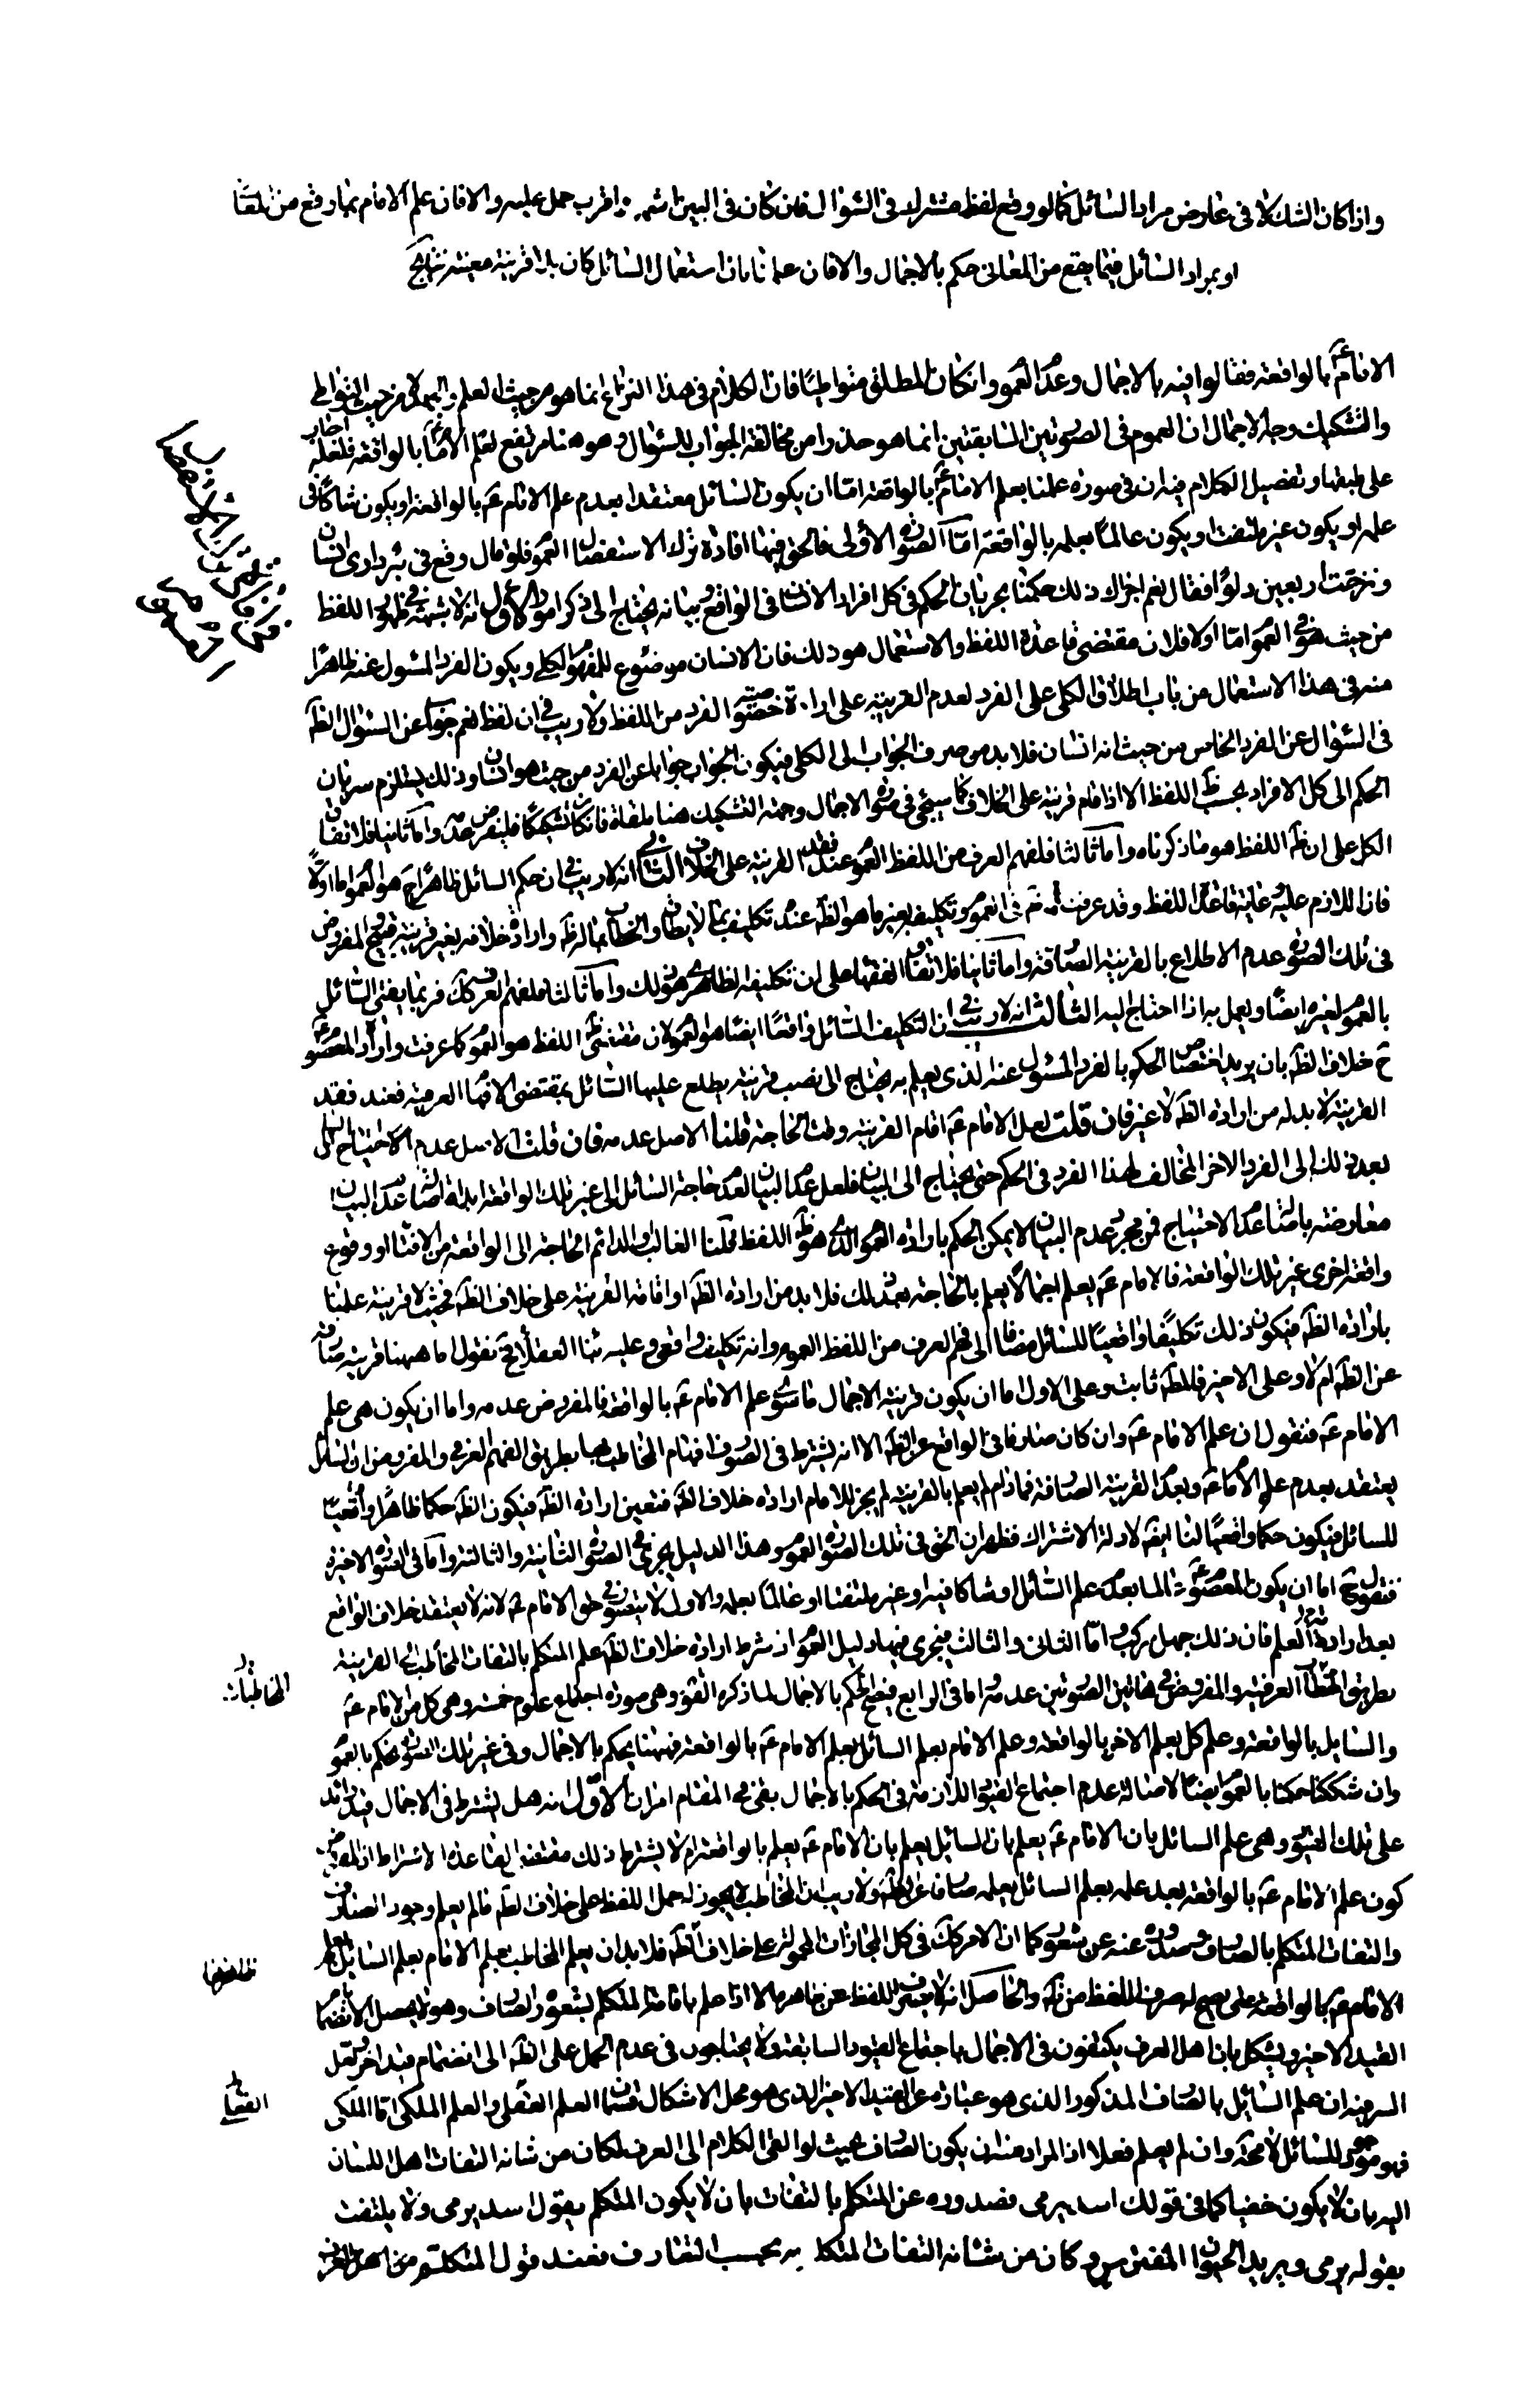 واذا كان الشك لا فى عارض مراد السائل كما لو وقع لفظ مشترك فى السؤال فان كان فى البين اشهر واقرب حمل عليه والا فان علم الامام بما وقع من
او بمراد السائل فيما يقع من المعانى حكم بالاجمال والا فان علمنا بان استعمال السائل كان بلا قرينة معينة
الامام ع بالواقعة فقالوا فيه بالاجمال وعدم العموم وانكان المطلق متواطيا فان الكلام فى هذا النزاع انما هو من حيث العلم والجهل لا من حيث التواطى
والتشكيك وجه الاجمال ان العموم فى الصورتين السابقتين انما هو حذرا من مخالفة الجواب للسؤال وهو هنا مرتفع لعلم الامام بالواقعة فلعله اجاب
على طبقها وتفصيل الكلام فيه ان فى صورة علمنا بعلم الامام ع بالواقعة اما ان يكون السائل معتقدا بعدم علم الامام ع بالواقعة او يكون شاكا فى
علمه او يكون غير ملتفت او يكون عالما بعلمه بالواقعة اما الصورة الأولى فالحق فيها افادة ترك الاستفصال العموم فلو قال وقع فى بئر دارى انسان
ونزحت اربعين دلوا فقال نعم اجزاك ذلك حكمنا بجريان الحكم فى كل افراد الانسان فى الواقع وبيانه يحتاج الى ذكر امور الاول انه لا شبهة فى ظهور اللفظ
من حيث هو فى العموم اما اولا فلان مقتضى قاعدة اللفظ والاستعمال هو ذلك فان الانسان موضوع للمفهوم الكلى ويكون الفرد المسئول عنه ظاهرا
منه فى هذا الاستعمال من باب اطلاق الكلى على الفرد لعدم القرينة على ارادة خصوصية الفرد من اللفظ ولا ريب فى ان لفظ نعم جواب عن السؤال الظ
فى السؤال عن الفرد الخاص من حيث انه انسان فلا بد من صرف الجواب الى الكلى فيكون الجواب جوابا عن الفرد من حيث هو انسان وذلك يستلزم سريان
الحكم الى كل الافراد بحسب ظ اللفظ الا اذا قام قرينة على الخلاف كما سيجئ فى صورة الاجمال وجهة التشكيك هنا ملغاة فان كان تشكيكا فليفرض عدمه واما ثانيا فلاتفاق
الكل على ان ظ اللفظ هو ما ذكرناه واما ثالثا فلفهم العرف من اللفظ العموم عند فقد القرينة على الخلاف الثانى انه لا ريب فى ان حكم السائل ظاهرا ح هو العموم اما اولا
فان اللازم عليه رعاية قاعدة اللفظ وقد عرفت انه فى العموم وتكليفه بغير ما هو الظ عنده تكليف بما لا يطاق والخطاب بما له ظ وارادة خلافه بغير قرينة قبيح والمفروض
فى تلك الصورة عدم الاطلاع بالقرينة الصارفة واما ثانيا فلاتفاق الفقهاء على ان تكليفه الظاهرى هو ذلك واما ثالثا فلفهم العرف كك فربما يفتى السائل
بالعموم لغيره ايضا ويعمل به اذا احتاج اليه الثالث انه لا ريب فى ان التكليف السائل واقعا ايضا هو العموم لان مقتضى ظ اللفظ هو العموم كما عرفت وارادة المعصوم ع
ح خلاف الظ بان يريد اختصاص الحكم بالفرد المسئول عنه الذى يعلم به يحتاج الى نصب قرينة يطلع عليها السائل بمقتضى الافهام العرفية فعند فقد
القرينة لا بد له من ارادة الظ لا غير فان قلت لعل الامام ع اقام القرينة وقت الحاجة قلنا الاصل عدمه فان قلت الاصل عدم الاحتياج الى
بعد ذلك الى الفرد الاخر المخالف لهذا الفرد فى الحكم حتى يحتاج الى البيان فلعل عدم البيان لعدم حاجة السائل الى غير تلك الواقعة ابدا فاصالة عدم البيان
معارضة باصالة عدم الاحتياج فمن مجرد عدم البيان لا يمكن الحكم بارادة العموم الذى هو ظ اللفظ قلنا الغالب والدائم الحاجة الى الواقعة من الافتاء او وقوع
واقعة اخرى غير تلك الواقعة فالامام ع يعلم اجمالا يعلم بالحاجة بعد ذلك فلا بد من ارادة الظ او اقامة القرينة على خلاف الظ فحيث لا قرينة علمنا
بارادة الظ فيكون ذلك تكليفا واقعيا للسائل مضافا الى فهم العرف من اللفظ العموم وانه تكليف واقعى وعليه بناء العقلاء فح نقول اما ههنا قرينة صارفة
عن الظ ام لا وعلى الاخير فالمط ثابت وعلى الاول اما ان يكون قرينة الاجمال ما سوى علم الامام ع بالواقعة فالمفروض عدمه واما ان يكون هى علم
الامام ع فنقول ان علم الامام ع وان كان صارفا فى الواقع عن الظ الا انه يشترط فى الصرف افهام المخاطب بها بطريق الفهم العرفى والمفروض ان السائل
يعتقد بعدم علم الامام ع وبعدم القرينة الصارفة فما دام لم يعلم بالقرينة لم يجز للامام ارادة خلاف الظ فتعين ارادة الظ فيكون الظ حكما ظاهرا واقعيا
للسائل فيكون حكما واقعيا لنا ايضا لادلة الاشتراك فظهر ان الحق فى تلك الصورة العموم وهذا الدليل يجرى فى الصورة الثانية والثالثة واما فى الصورة الاخيرة
فنقول ح اما ان يكون المعصوم ع عالما بعدم علم السائل او شاكا فيه او غير ملتفت او عالما بعلمه والاول لا يتصور فى حق الامام ع لانه لا يعتقد خلاف الواقع
بعد ارادة العلم فان ذلك جهل مركب واما الثانى والثالث فيجرى فيهما دليل العموم اذ شرط ارادة خلاف الظ علم المتكلم بالتفات المخاطب الى القرينة
بطريق المخاطبات العرفية والمفروض فى هاتين الصورتين عدمه واما فى الرابع فيصح الحكم بالاجمال لما ذكره القوم وهى صورة اجتماع علوم خمسة وهى كل من الامام ع
والسائل بالواقعة وعلم كل بعلم الاخر بالواقعة وعلم الامام بعلم السائل بعلم الامام ع بالواقعة فههنا يحكم بالاجمال وفى غير تلك الصورة يحكم بالعموم
وان شككنا حكمنا بالعموم ايضا لاصالة عدم اجتماع القيود اللازمة فى الحكم بالاجمال بقى فى المقام امران الاول انه هل يشترط فى الاجمال قيد زائد
على تلك القيود وهى علم السائل بان الامام ع يعلم بان السائل يعلم بان الامام ع يعلم بالواقعة ام لا يشترط ذلك مقتضى القاعدة الاشتراط اذ المفروض
كون علم الامام ع بالواقعة بعد علمه بعلم السائل بعلمه صارفا عن الظ ولا ريب ان المخاطب لا يجوز له حمل اللفظ على خلاف الظ ما لم يعلم وجود الصارف
والتفات المتكلم بالصارف وصدوره عنه عن شعور كما ان الامر كك فى كل المجازات المحمولة على خلاف الظ فلا بد ان يعلم المخاطب بعلم الامام بعلم السائل بعلم
الامام ع بالواقعة حتى يصح له صرف اللفظ من ظ والحاصل انه لا يصرف اللفظ عن ظاهره الا اذا علم باقامة المتكلم بشعور الصارف وهو لا يحصل الا بانضمام
القيد الاخير ويشكل بان اهل العرف يكتفون فى الاجمال باجتماع القيود السابقة ولا يحتاجون فى عدم الحمل على الظ الى انضمام قيد اخر ولعل
السر فيه ان علم السائل بالصارف المذكور الذى هو عبارة عن القيد الاخير الذى هو محل الاشكال قسمان العلم الفعلى والعلم الملكى اما الملكى
فهو موجود للسائل لا محة وان لم يعلم فعلا اذ المراد منه ان يكون الصارف بحيث لو القى الكلام الى العرف لكان من شانه التفات اهل اللسان
اليه بان لا يكون خفيا كما فى قولك اسد يرمى فصدوره عن المتكلم بالتفات بان لا يكون المتكلم يقول اسد يرمى ولا يلتفت
بقوله يرمى ويريد الحيوان المفترس وكان من شانه التفات المتكلم به بحسب التعارف فعند قول المتكلم من اهل العرف
المخاطبات